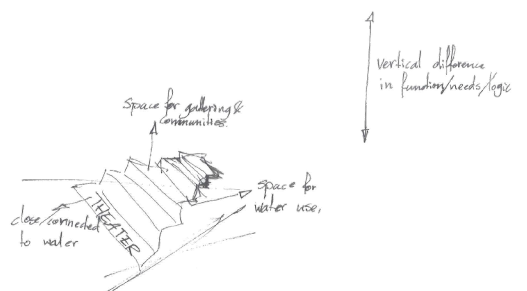 vertical difference
in function/needs/logic
Space for gathering &
communities.
space for
water use.
close/connected
to water
THEATER